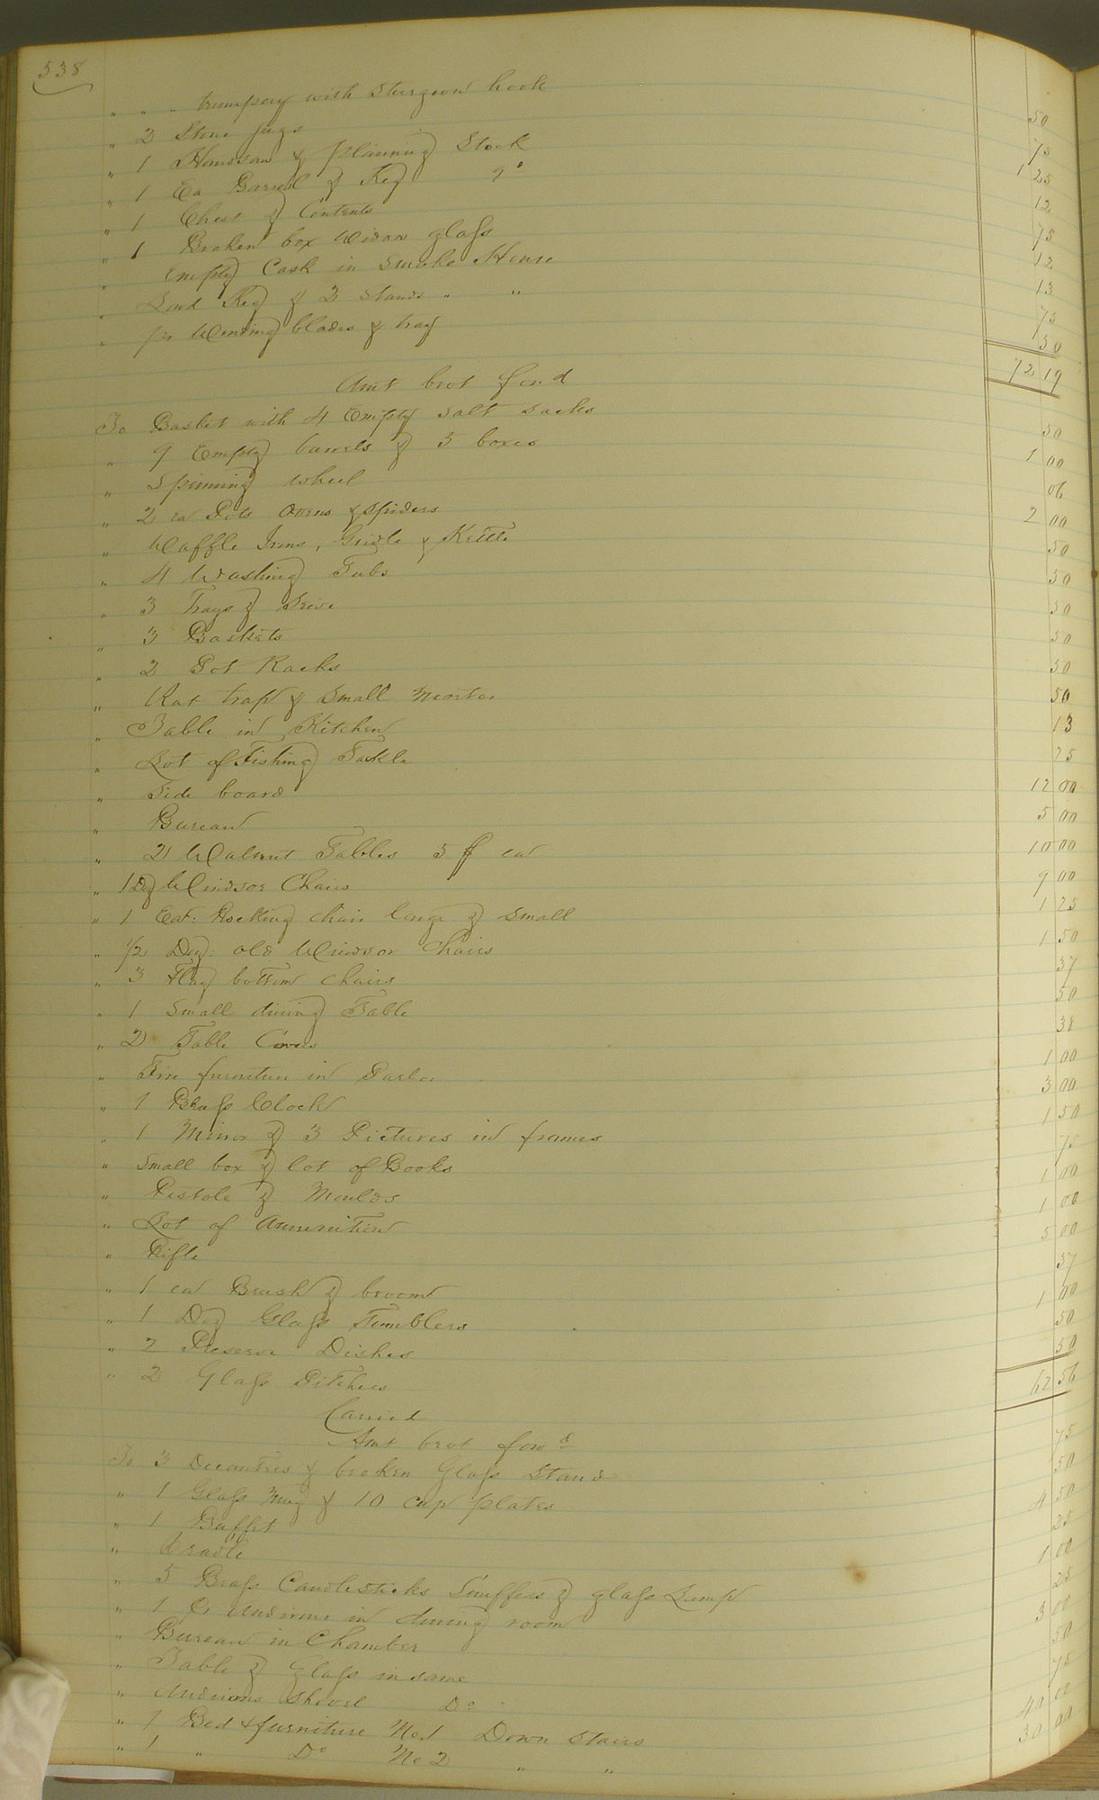 538
" " " trumpery with Sturgeon hook 50
" 2 Stone jugs 75
" 1 Handsaw & plaining Stock 1 25
" 1 Ea Barrel & Keg Do 12
" 1 Chest & Contents 75
" 1 Broken box Window glass 12
" Empty Cask in Smoke House 13
" Lard Keg & 3 Stands " " 75
" pr Winding blades & tray 50
Amt brot ford 72 19
To Basket with 4 Empty salt sacks 50
" 9 Empty barrels & 3 boxes 1 00
" Spinning wheel 06
" 2 ea Pots Ovens & Spiders 2 00
" Waffle Irons, Gridle & Kettle 50
" 4 Washing Tubs 50
" 3 Trays & Seive 50
" 3 Baskets 50
" 2 Pot Racks 50
" Rat trap & Small Morter 50
" Table in Kitchen 13
" Lot of Fishing Tackle 25
" Side board 12 00
" Bureau 5 00
" 2 Walnut Tables 5 $ ea 10 00
" 1 Doz Windsor Chairs 9 00
" 1 Eat: Rocking chair large & small 1 25
" 1/2 Doz. old Windsor Chairs 1 50
" 3 Flag bottom chairs 37
" 1 Small dining Table 50
" 2 Table Covers 38
" Fire furniture in Parlor 1 00
" 1 Brass Clock 3 00
" 1 Mirror & 3 Pictures in frames 1 50
" Small box & lot of Books 75
" Pistole & Moulds 1 00
" Lot of Ammunition 1 00
" Rifle 5 00
" 1 ea Brush & broom 37
" 1 Doz Glass Tumblers 1 00
" 2 Preserve Dishes 50
" 2 Glass Pitchers 50
Carried 62 56
Amt brot forwd
To 3 Decanters & broken Glass Stand 75
" 1 Glass Mug & 10 cup plates 50
" 1 Buffet 4 50
" Cradle 25
" 5 Brass Candlesticks Snuffers & glass Lamp 1 00
" 1 Pr Andirons in dining room 25
" Bureau in Chamber 3 00
" Table & Glass in same 50
" Andirons Shovel Do 75
" 1 Bed & furniture No. 1 Down Stairs 40 00
" 1 " Do No 2 " " 30 00